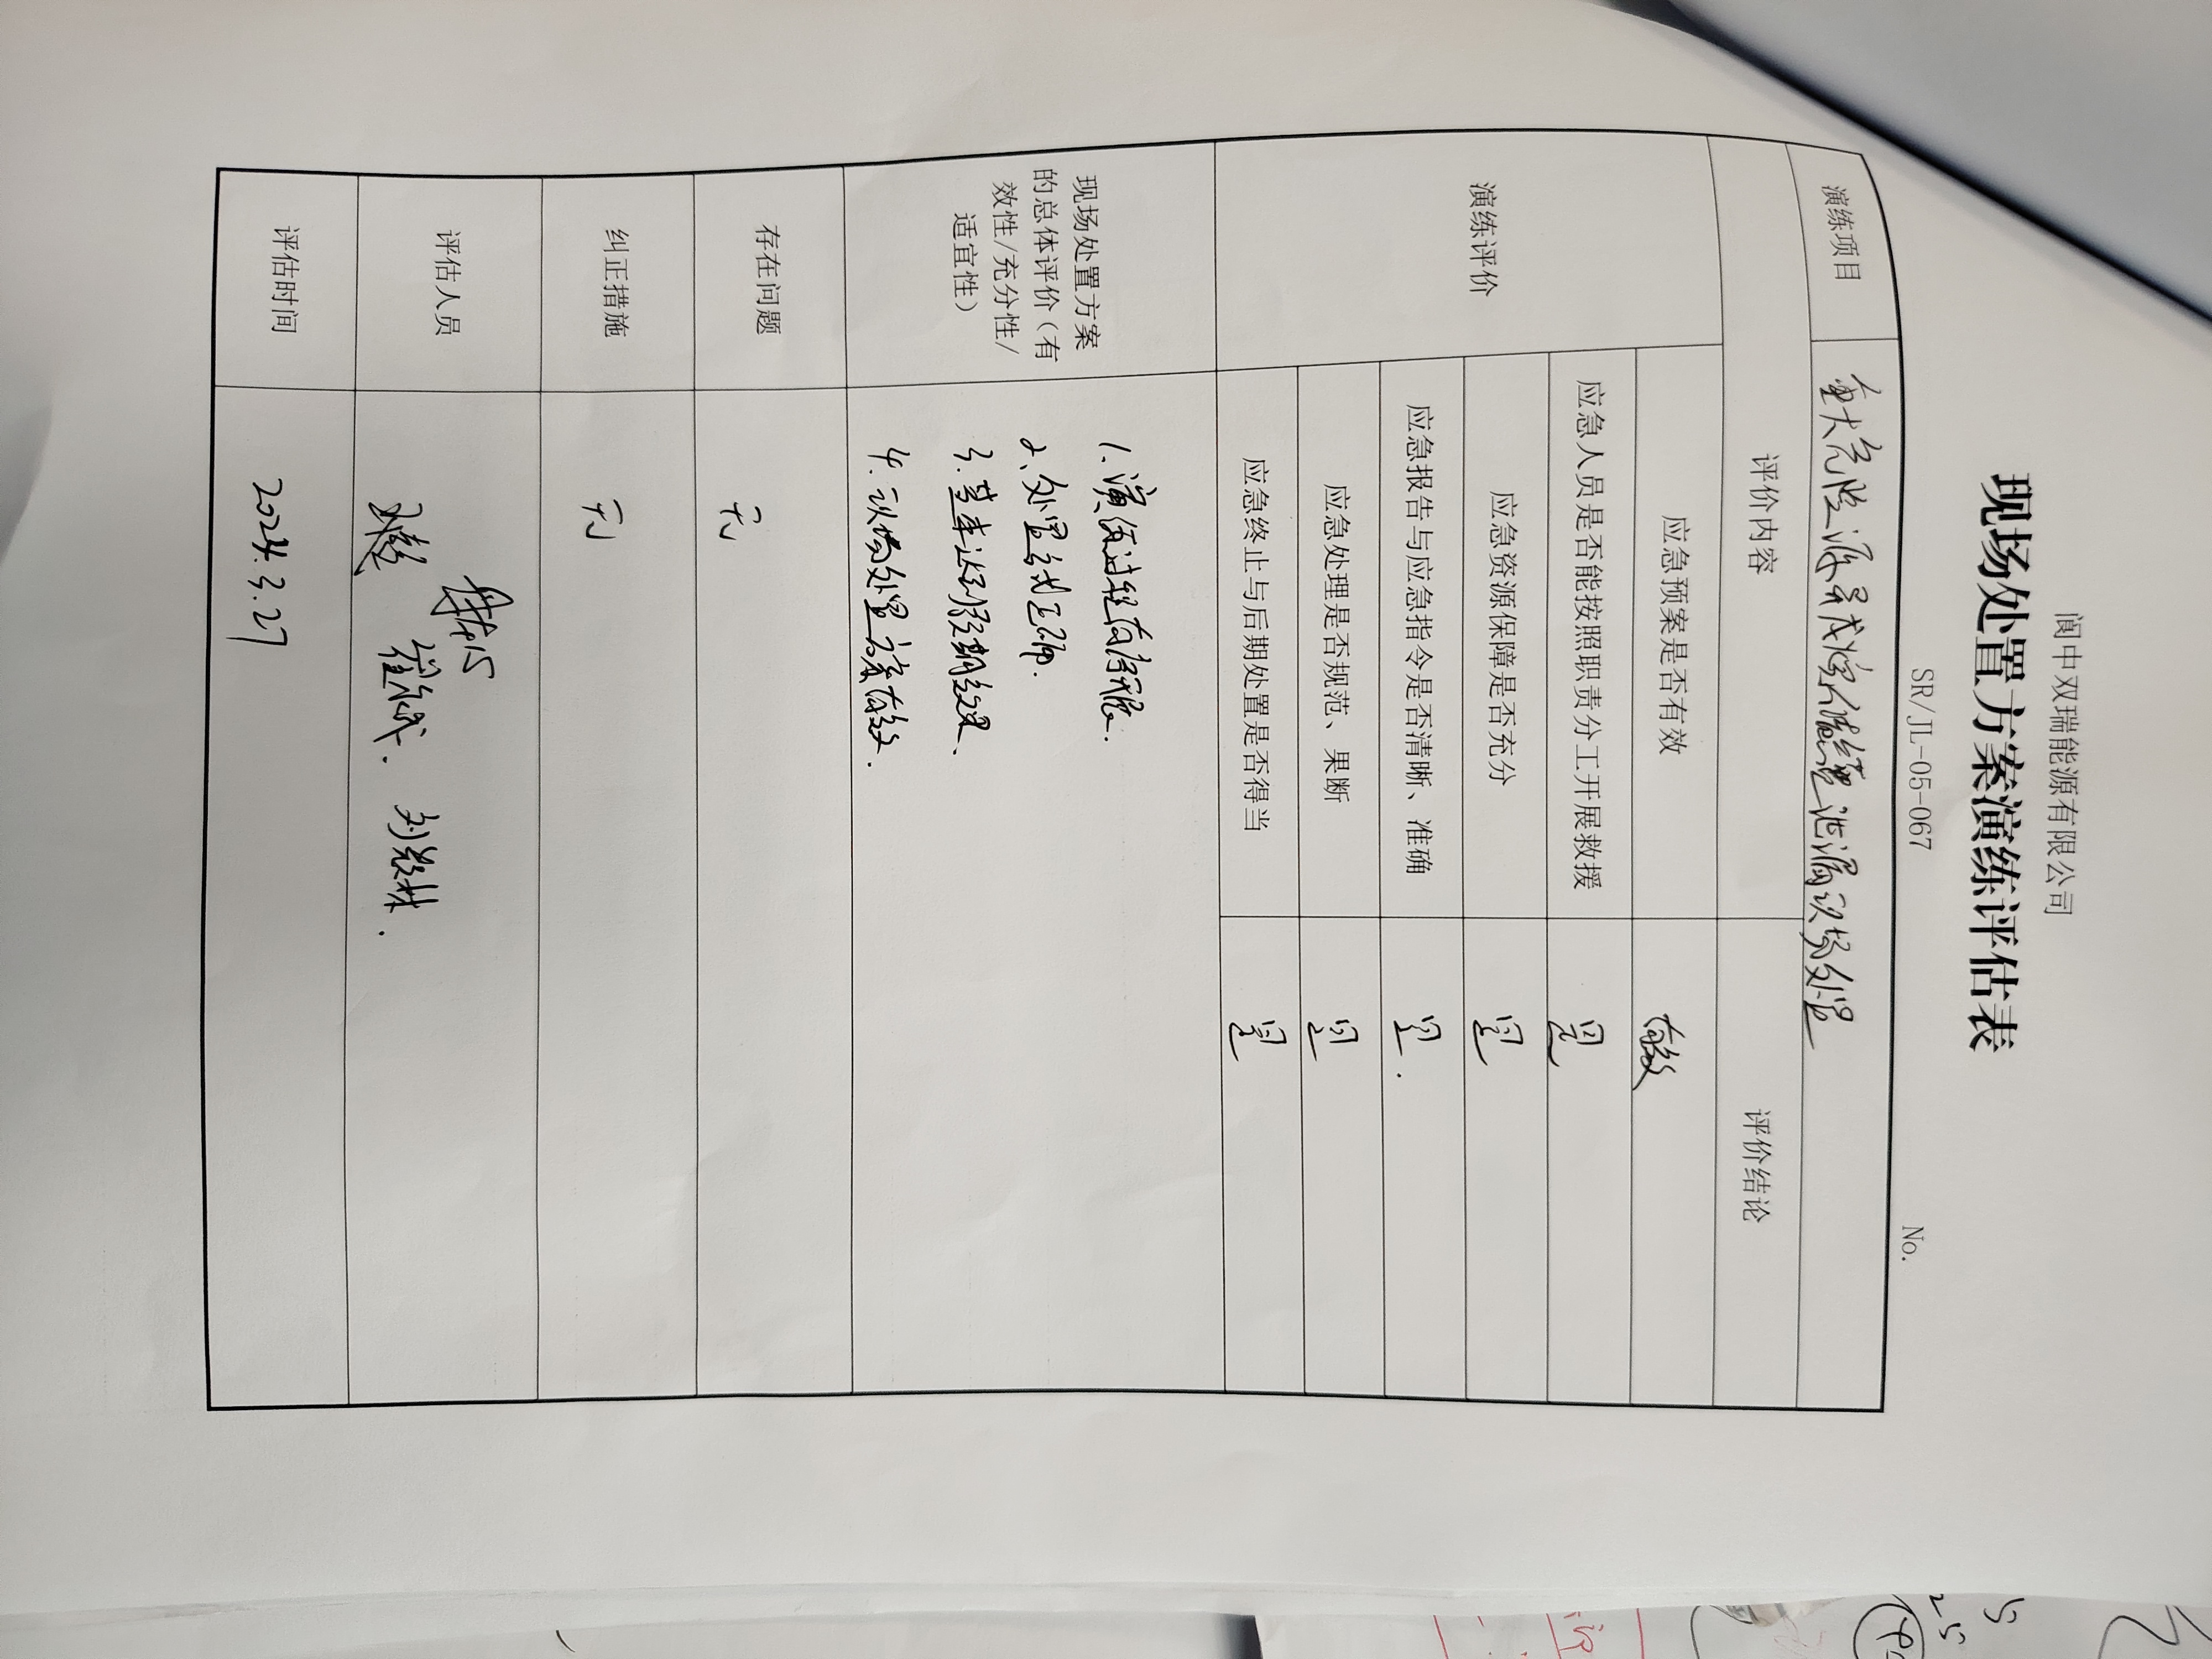 阆中双瑞能源有限公司
现场处置方案演练评估表
SR/JL-05-067 No.
演练项目 重大危险源异戊烷储罐泄漏现场处置
评价内容 评价结论
演练评价
应急预案是否有效 有效
应急人员是否能按照职责分工开展救援 是
应急资源保障是否充分 是
应急报告与应急指令是否清晰、准确 是.
应急处理是否规范、果断 是
应急终止与后期处置是否得当 是
现场处置方案
的总体评价(有
效性/充分性/
适宜性)
1、演练过程有序.
2、处置方式正确.
3.基本达到预期效果、
4.现场处置方案有效.
存在问题 无
纠正措施 无
评估人员
评估时间 2024.3.27